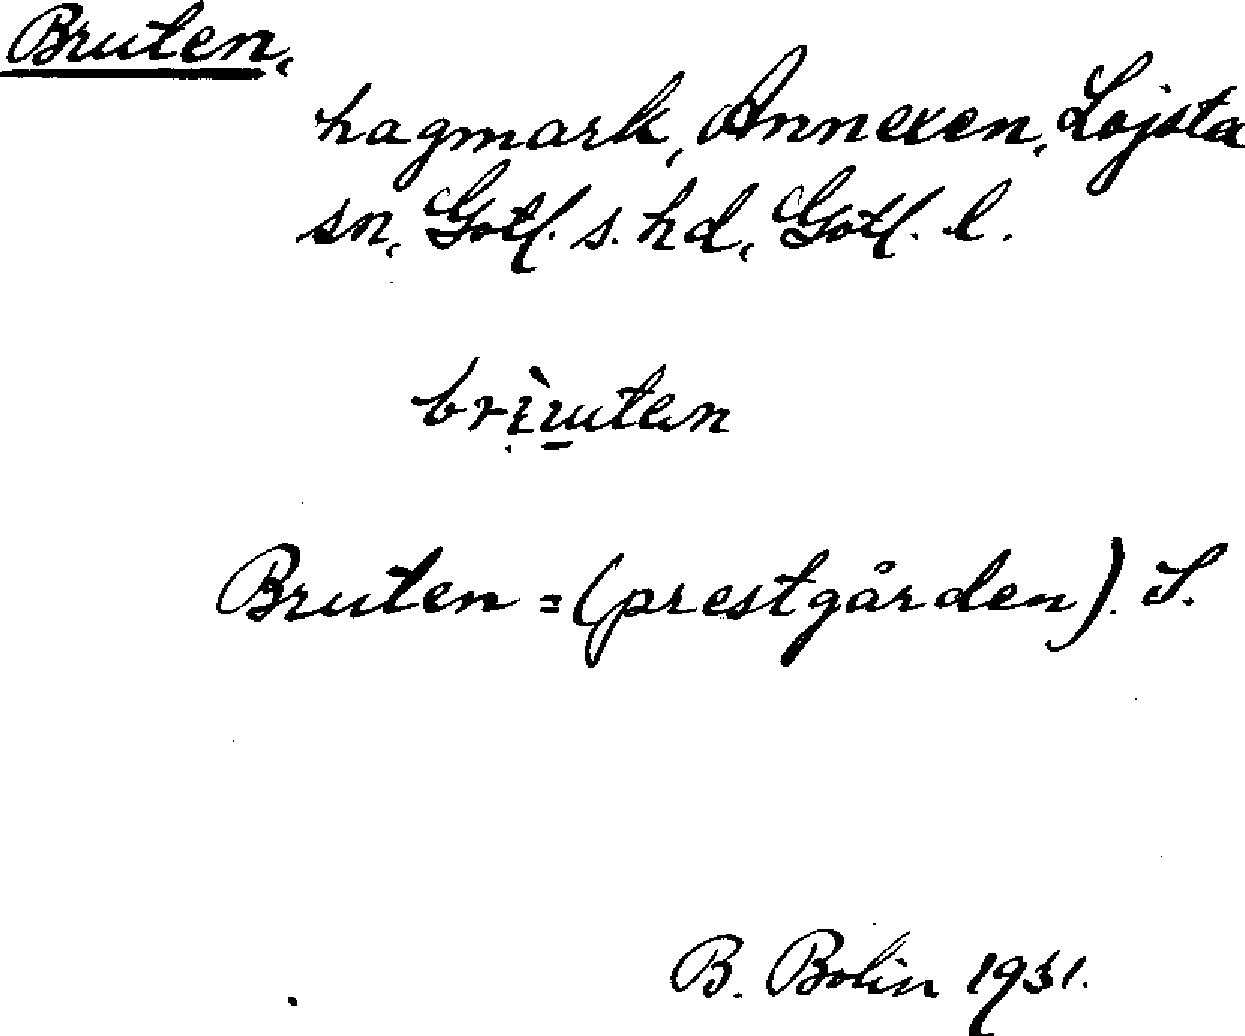 Bruten,
hagmark, Annexen, Lojsta
sn, Gotl. s. hd, Gotl. l.
Bruten = (prestgården). S.
B. Bolin 1931.